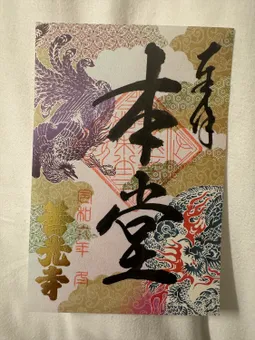 奉拝
本堂
令和六年 月
善光寺